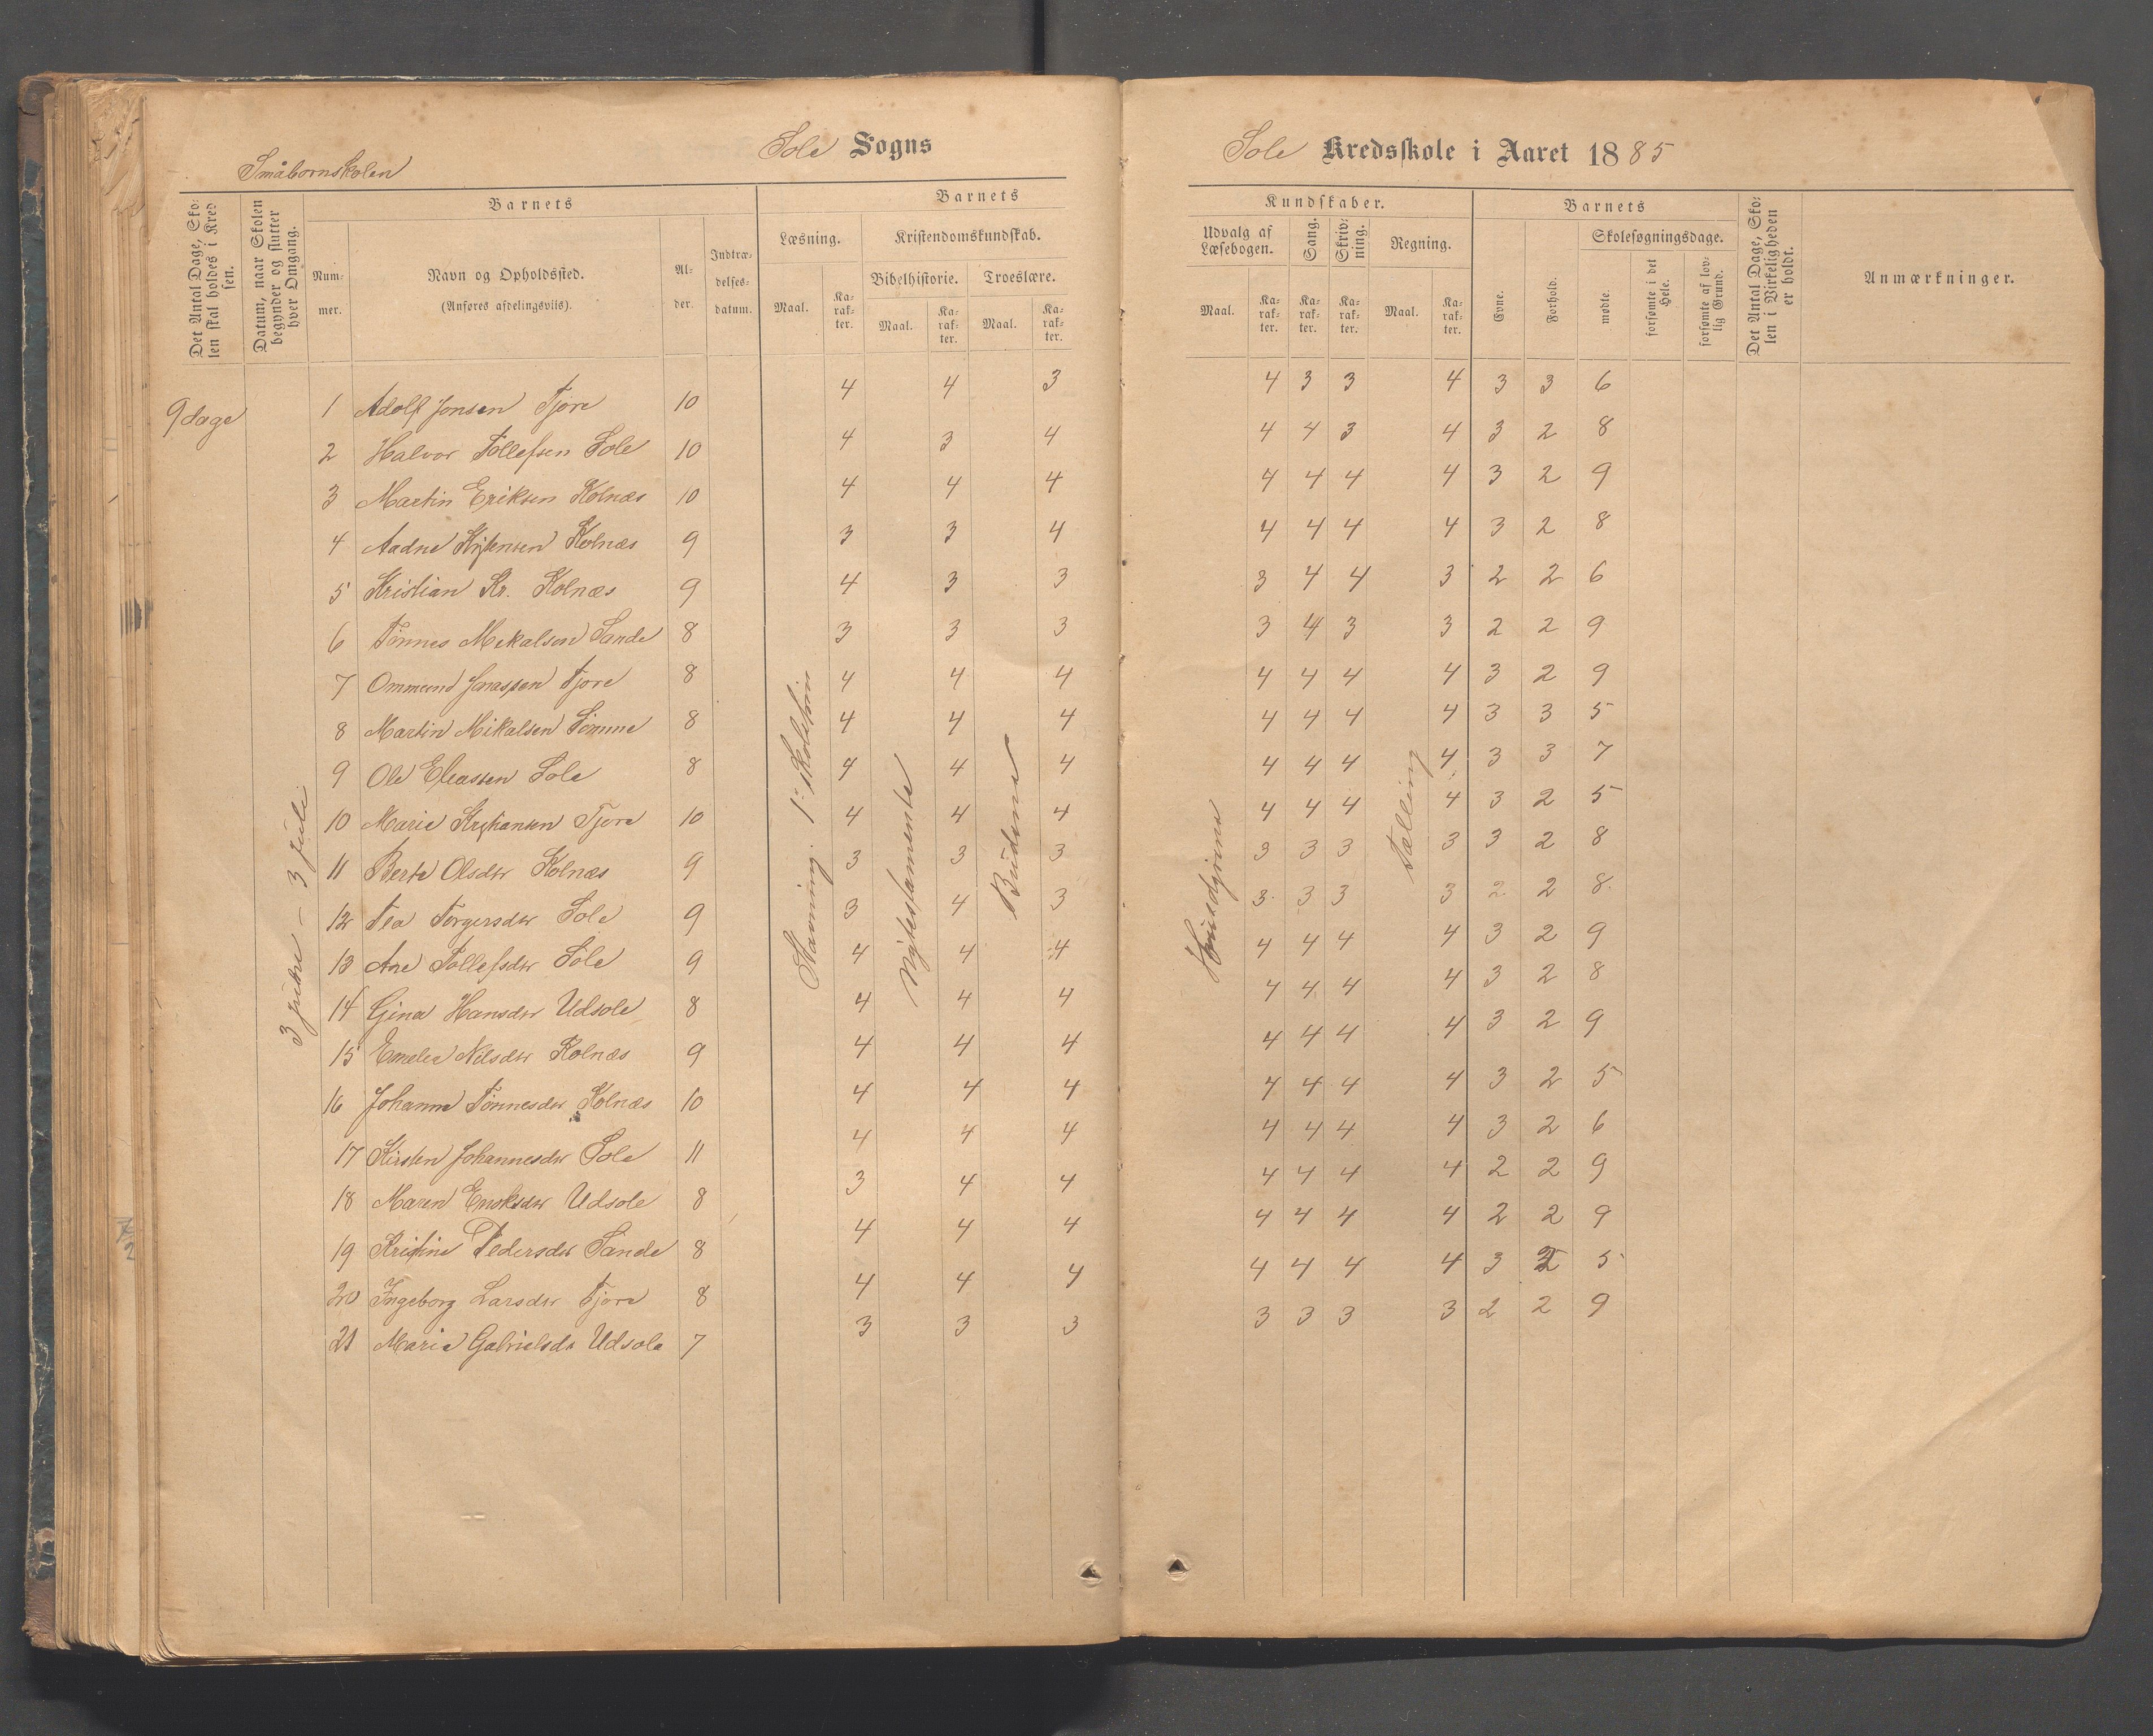 Sole Sogns
Småbornskolen
Det Antal Dage, Skolen skal holdes i Kredsen.
Datum, naar Skolen begynder og slutter hver Omgang.
Barnets
Nummer.
Navn og Opholdssted.
(Anføres afdelingsviis).
Alder.
Indtrædelsesdatum.
Barnets
Læsning.
Maal.
Karakter.
Kristendomskundskab.
Bibelhistorie.
Maal.
Karakter.
Troeslære.
Maal.
Karakter.
9 dage
3 juni – 3 juli
Stavning. 1. skoletrin
Nytestamente
Budene
1 Adolf Jonsen Tjore 10 4 4 3
2 Halvor Tollefsen Sole 10 4 3 4
3 Martin Eriksen Kolnæs 10 4 4 4
4 Aadne Kristensen Kolnæs 9 3 3 4
5 Kristian Kr. Kolnæs 9 4 3 3
6 Tønnes Mekalsen Sande 8 3 3 3
7 Ommund Jonassen Tjore 8 4 4 4
8 Martin Mikalsen Sømme 8 4 4 4
9 Ole Eleassen Sole 8 4 4 4
10 Marie Kristiansen Tjore 10 4 4 4
11 Berte Olsdtr Kolnæs 9 3 3 3
12 Tea Torgersdtr Sole 9 3 4 3
13 Ane Tollefsdtr Sole 9 4 4 4
14 Gina Hansdtr Udsole 8 4 4 4
15 Emelie Nilsdtr Kolnæs 9 4 4 4
16 Johanne Tønnesdtr Kolnæs 10 4 4 4
17 Kirsten Johannesdtr Sole 11 4 4 4
18 Maren Enoksdtr Udsole 8 3 4 4
19 Kristine Pedersdtr Sande 8 4 4 4
20 Ingeborg Larsdtr Tjore 8 4 4 4
21 Marie Gabrielsdtr Udsole 7 3 3 3
Sole Kredsskole i Aaret 1885
Kundskaber.
Udvalg af Læsebogen.
Maal.
Karakter.
Sang.
Karakter.
Skrivning.
Karakter.
Regning.
Maal.
Karakter.
Barnets
Evne.
Forhold.
Skolesøgningsdage.
mødte.
forsømte i det Hele.
forsømte af lovlig Grund.
Det Antal Dage, Skolen i Virkeligheden er holdt.
Anmærkninger.
Tælling
4 3 3 4 3 3 6
4 4 3 4 3 2 8
4 4 4 4 3 2 9
4 4 4 4 3 2 8
3 4 4 3 2 2 6
3 4 3 3 2 2 9
4 4 4 4 3 2 9
4 4 4 4 3 3 5
4 4 4 4 3 3 7
4 4 4 4 3 2 5
3 3 3 3 3 2 8
3 3 3 3 2 2 8
4 4 4 4 3 2 9
4 4 4 4 3 2 8
4 4 4 4 3 2 9
4 4 4 4 3 2 5
4 4 4 4 3 2 6
4 4 4 4 2 2 9
4 4 4 4 2 2 9
4 4 4 4 3 2 5
3 3 3 3 2 2 9